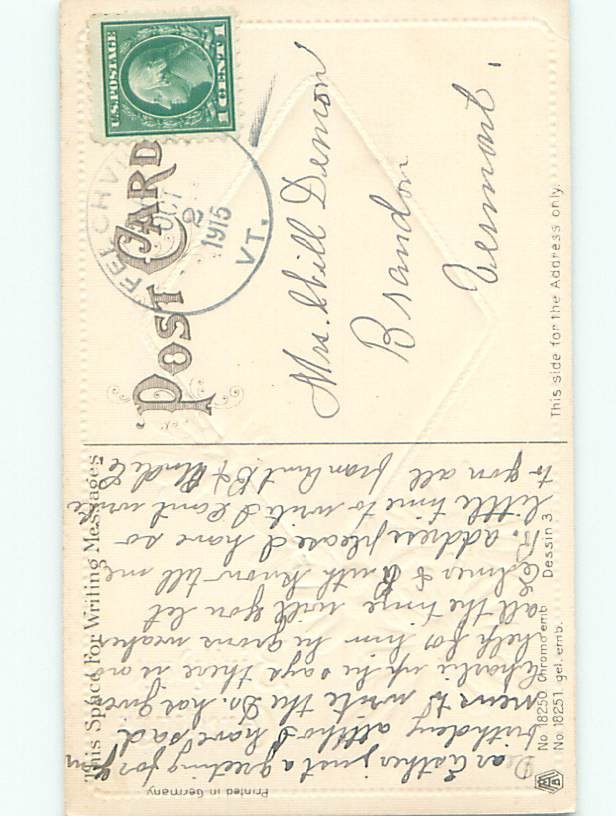 U.S. POSTAGE
1 CENT 1
OCT
2
1915
VT.
POST CARD
Mrs. Will Denson
Brandon
Vermont.
This side for the Address only.
This Space For Writing Messages
Dear Esther just a greeting for your
birthday altho I have sad
news to write the Dr. has given
Charlie up he says there is no
help for him he grows weaker
all the time will you let
Elmer & Ruth know tell me
R. address please I have so
little time to write I cant write
to you all from Aunt B & Uncle C
No. 18250 Chromo emb. Dessin 3
No. 18251. gel. emb.
Printed in Germany